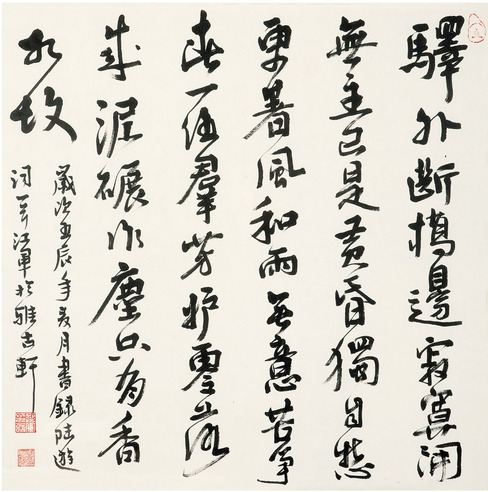 驛外斷橋邊寂寞開
無主已是黃昏獨自愁
更著風和雨无意苦争
春一任羣芳妒零落
成泥碾作塵只有香
如故
歲次壬辰年夏月書錄陸遊
詞一首江軍於雅古軒